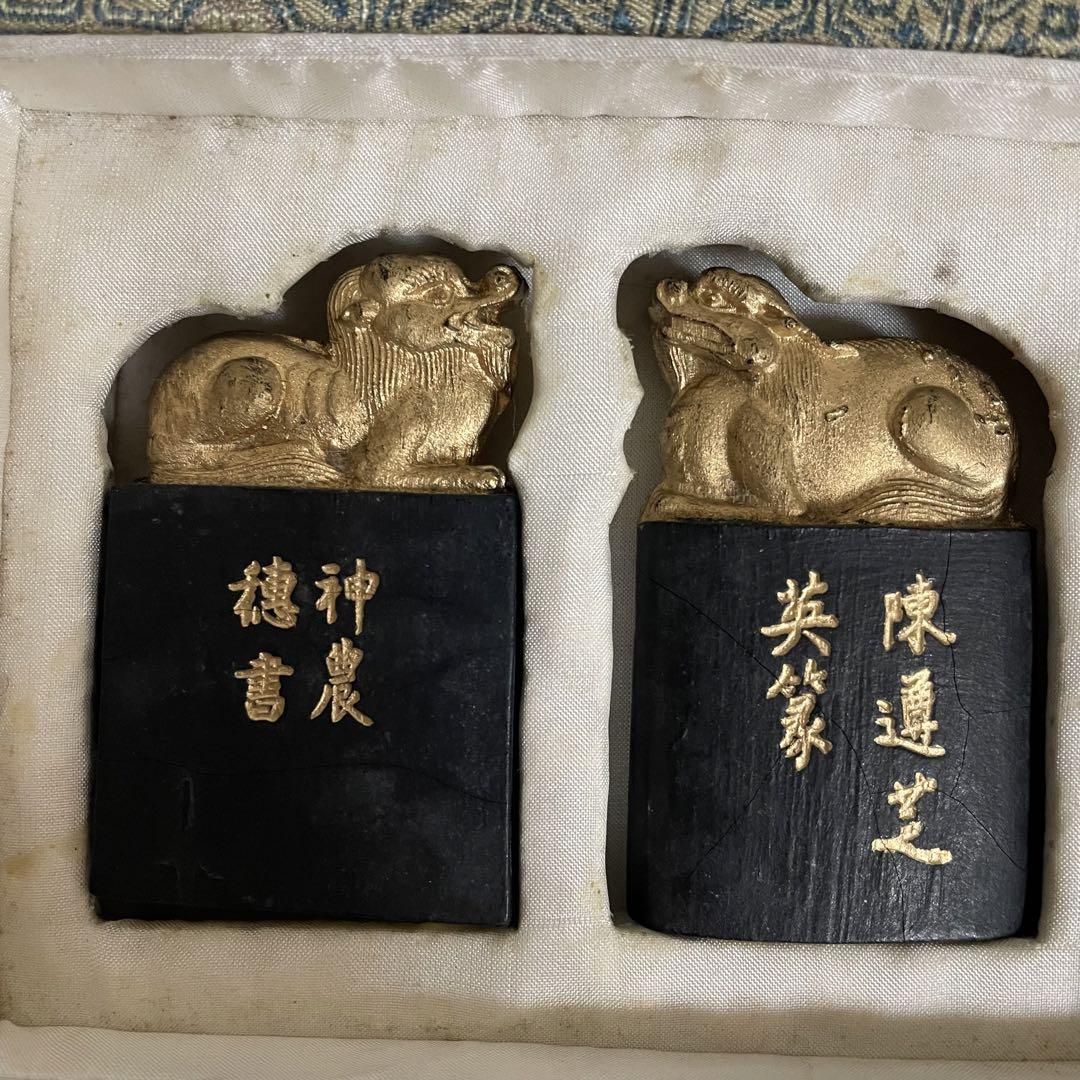 神農
穗書
陳遵芝
英篆